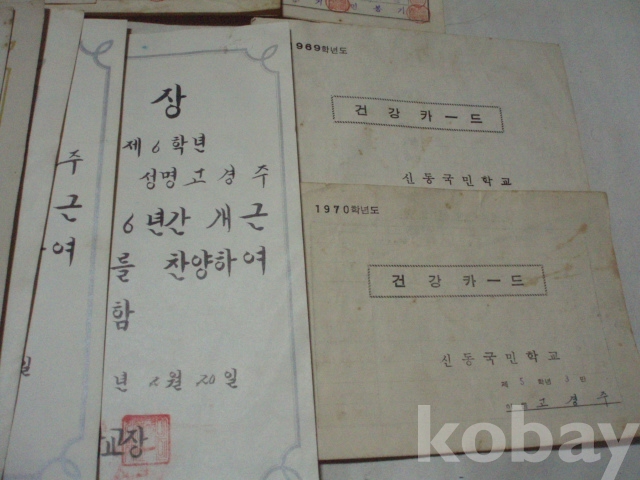 주
근
여
일
장
제6학년
성명 고경주
6년간 개근
를 찬양하여
함
년 2월 20일
교장
1969학년도
건강카ー드
신동국민학교
1970학년도
건강카ー드
신동국민학교
제 5 학년
고경주
kobay